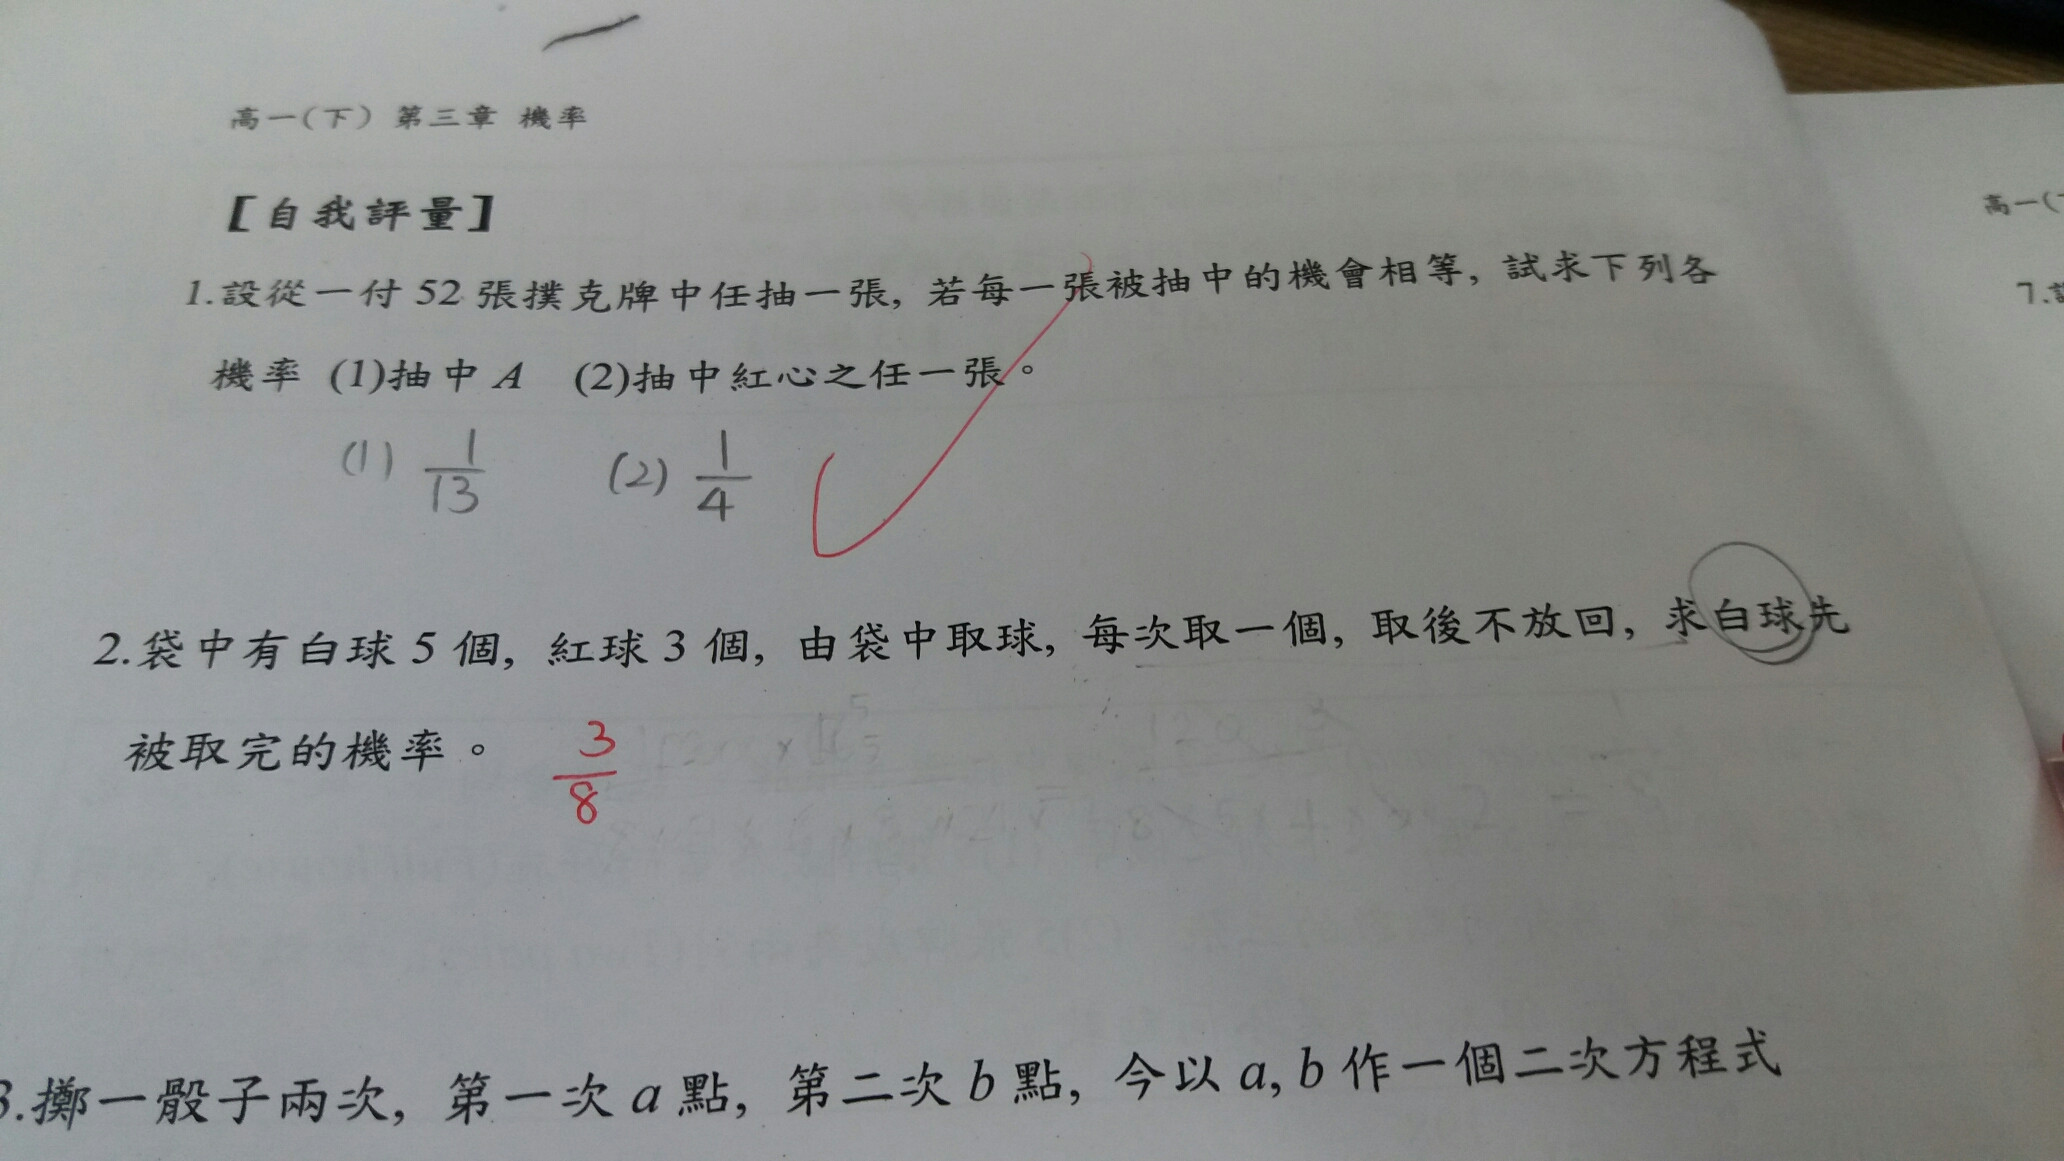 高一(下) 第三章 機率
【自我評量】
1.設從一付 52 張撲克牌中任抽一張, 若每一張被抽中的機會相等, 試求下列各
機率 (1)抽中 A (2)抽中紅心之任一張。
(1) 1/13 (2) 1/4
2.袋中有白球 5 個, 紅球 3 個, 由袋中取球, 每次取一個, 取後不放回, 求白球先
被取完的機率。 3/8
3.擲一骰子兩次, 第一次 a 點, 第二次 b 點, 今以 a, b 作一個二次方程式
高一(
7.